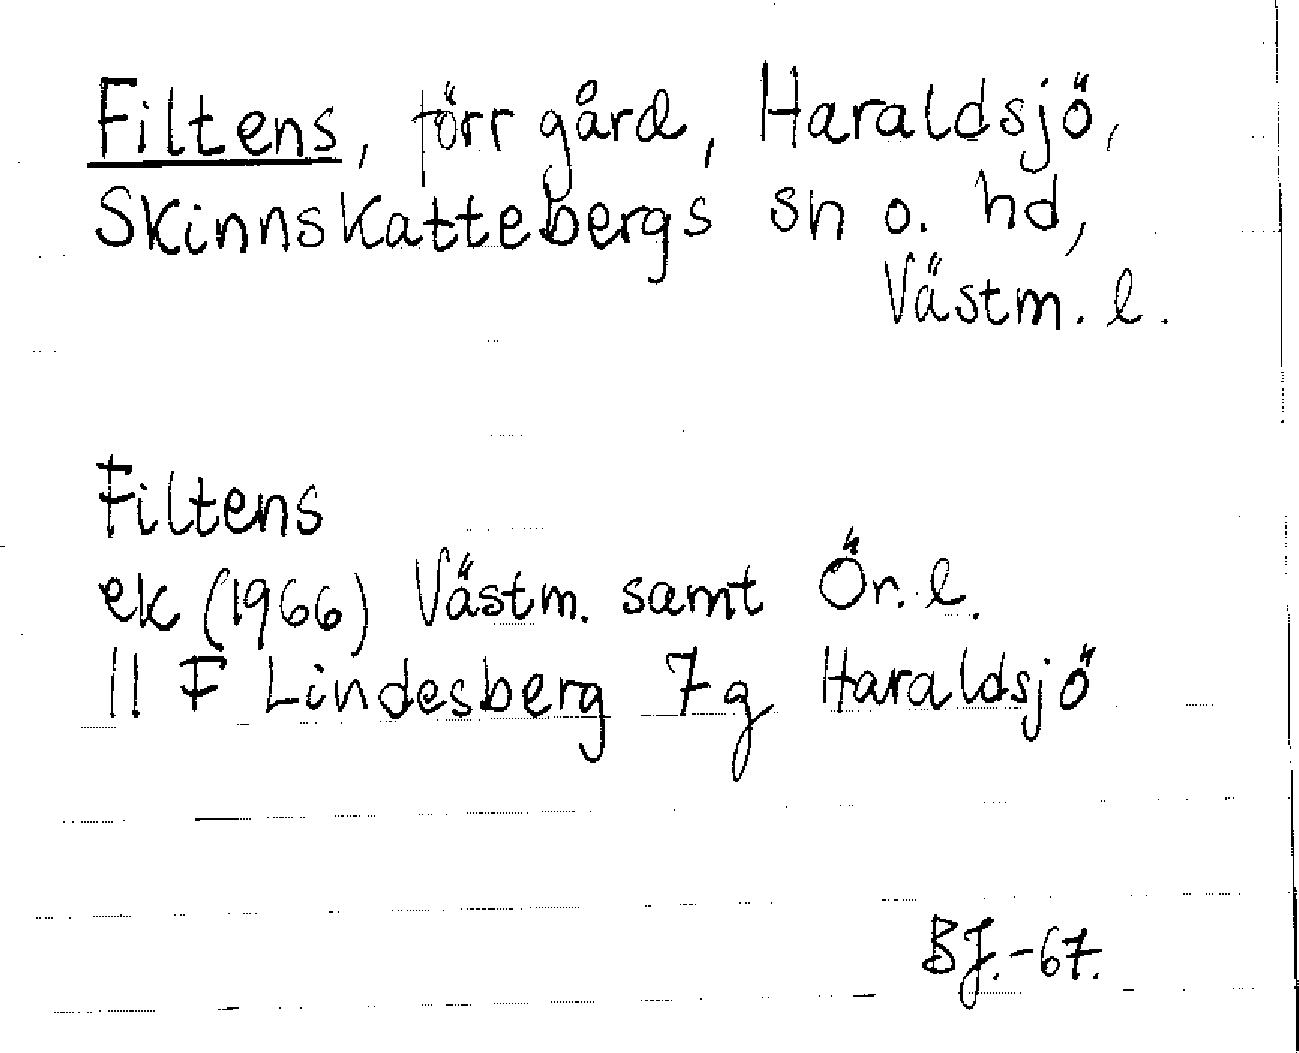 Filtens, förr gård, Haraldsjö,
Skinnskattebergs sn o. hd,
Västm. l.
Filtens
ek (1966) Västm. samt Ör. l.
11 F Lindesberg 7g Haraldsjö
BJ.-67.